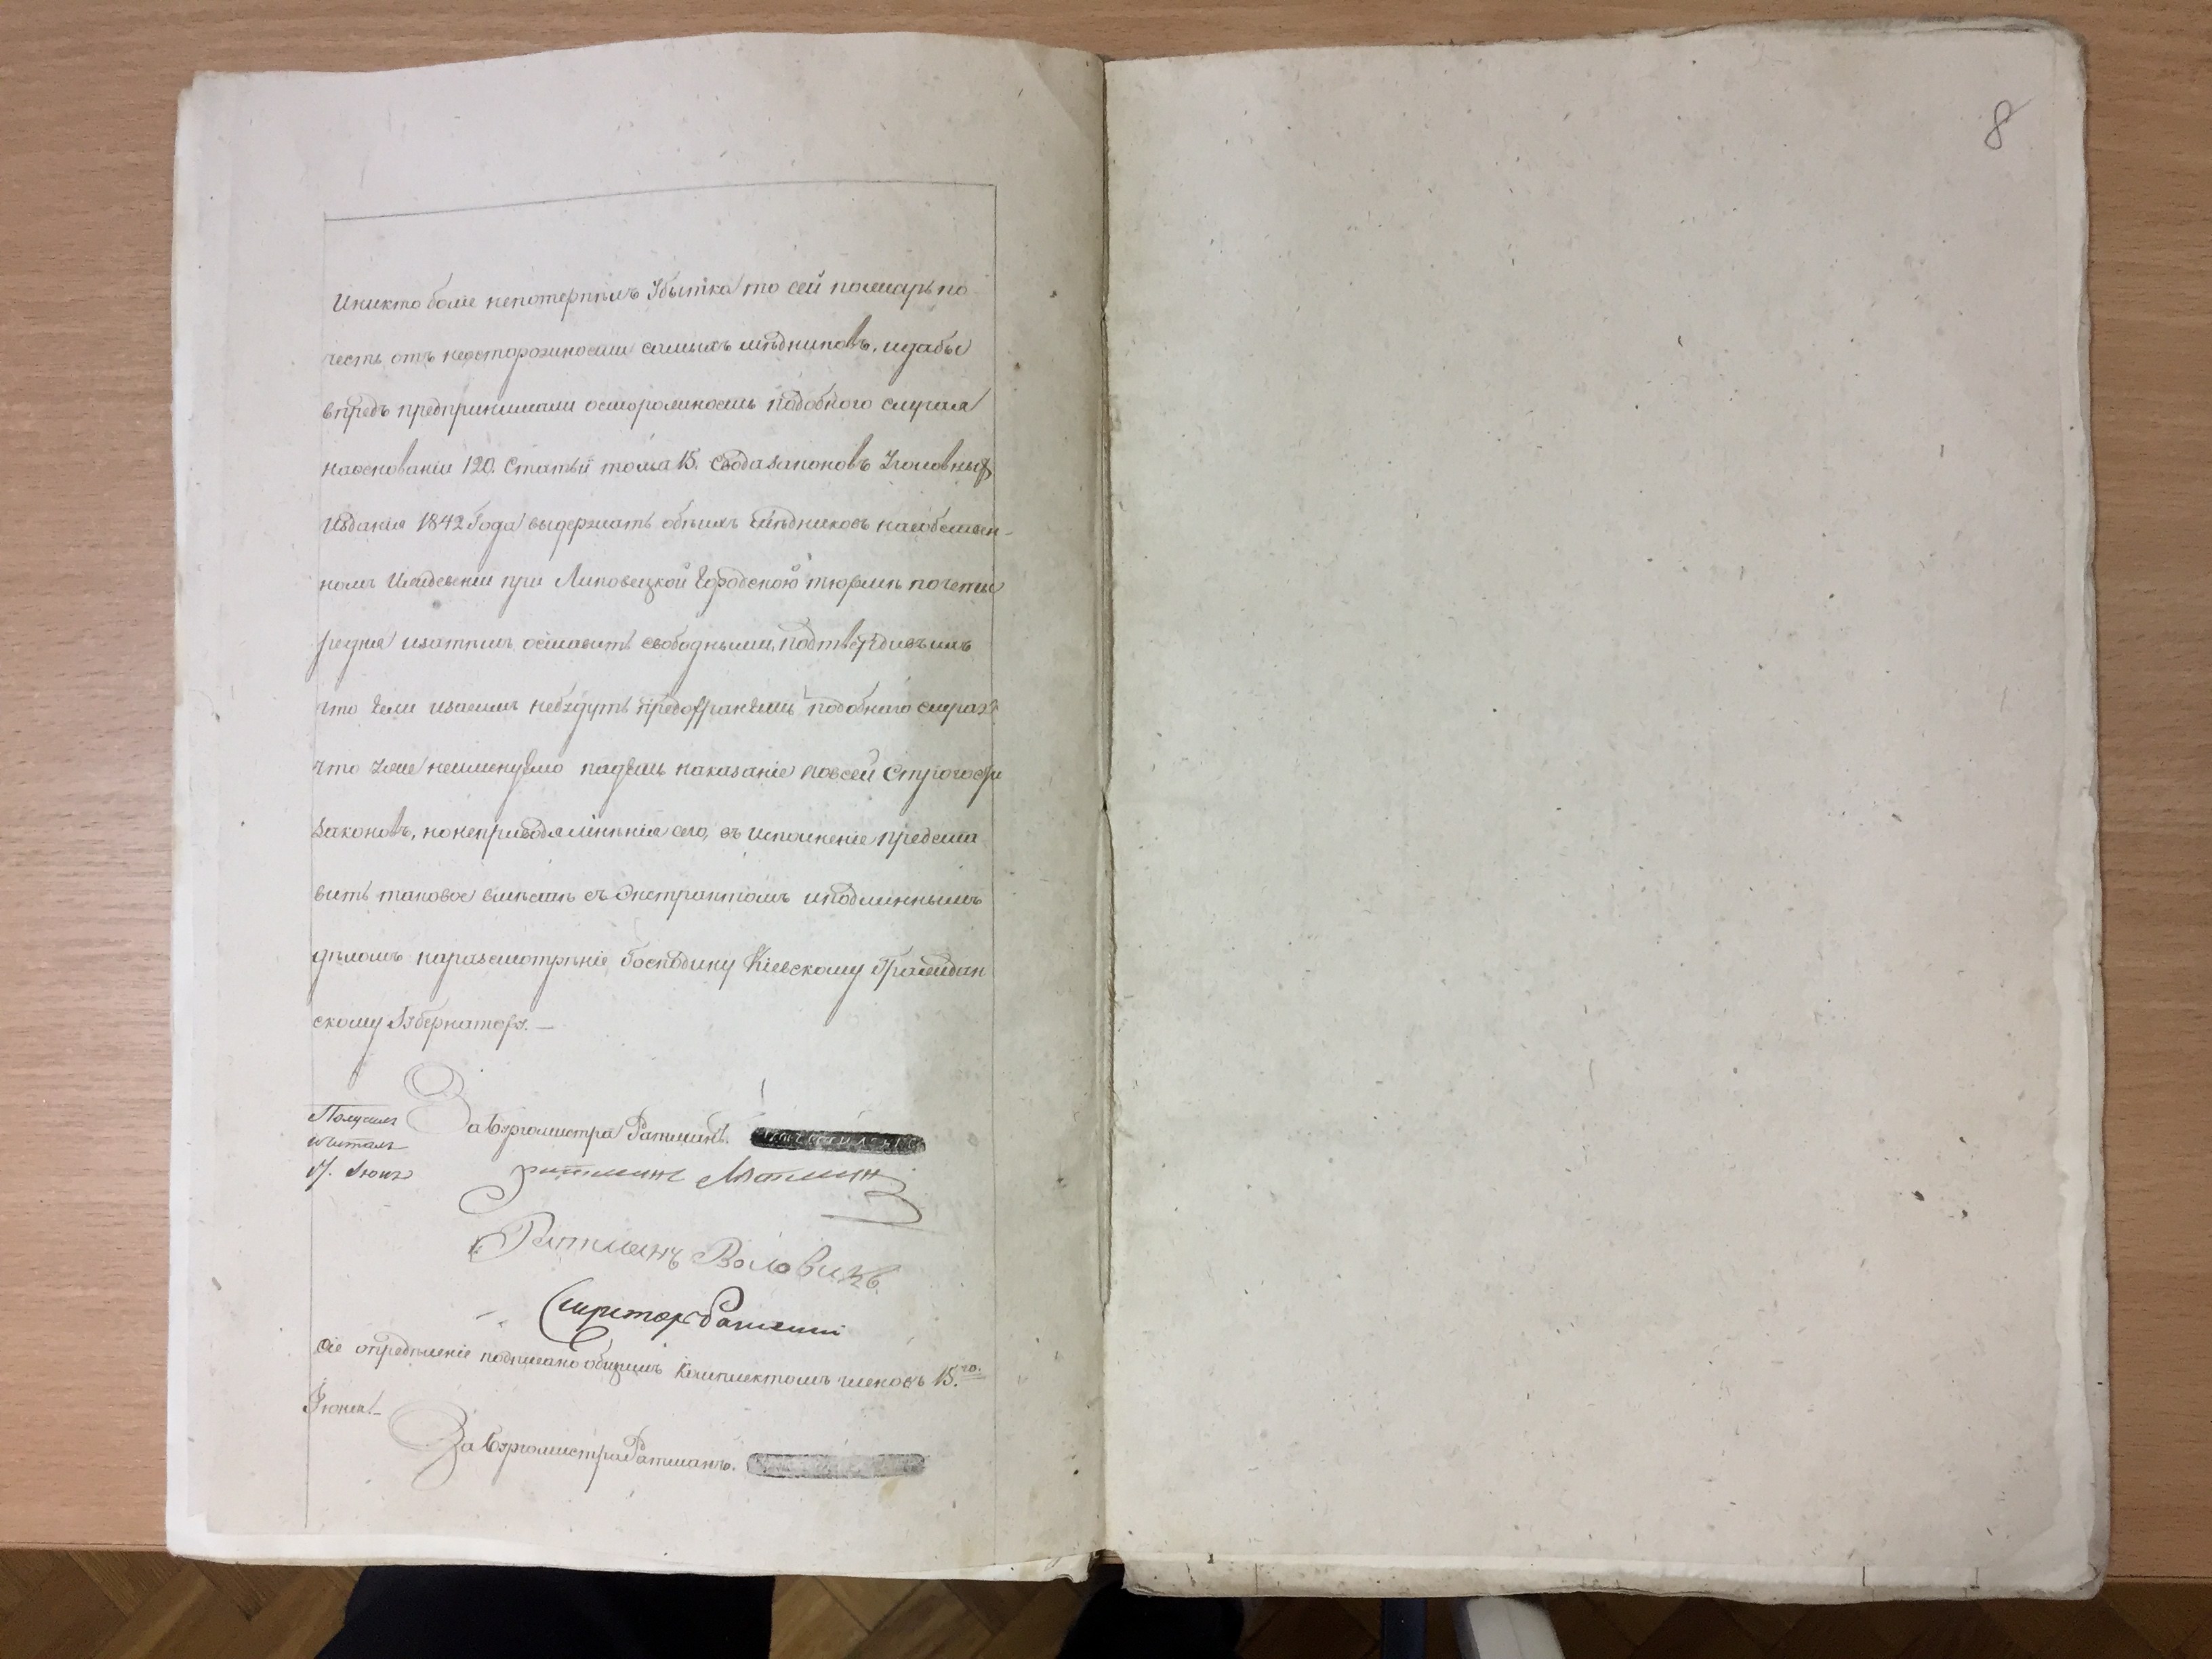 8
Иникто более непотерпѣлъ Убытка то сей пожаръ по
честь отъ неосторожности самыхъ мѣдниковъ, идабы
впредь предпринимали осторожность подобного случая
наосновании 120. Статьи тома 15. Свода законовъ Уголовныхъ
Издания 1842 Года выдержать обѣихъ мѣдниковъ насобствен-
номъ Иждевеніи при Липовецкой Городской тюрьмѣ почеты
ре дня изатѣмъ оставить свободными, подтвердивъ имъ
что Если изасимъ небудутъ предохранены подобнаго случая
что уже неминуемо падетъ наказаніе повсей Строгости
законовъ, нонеприводя мнѣнія сего, въ исполненіе предста
вить таковое вмѣстѣ съ Экстрактомъ иподлиннымъ
дѣломъ наразсмотрѣніе Господину Кіевскому Граждан
скому Губернатору. —
Получилъ
ичиталъ
17. Іюня
За Бургомистра Ратманъ.
Ратманъ
Ратманъ Воловикъ
Сие опредѣленіе подписано общимъ Комплектомъ членовъ 15.го
Іюня. —
За Бургомистра Ратманъ.